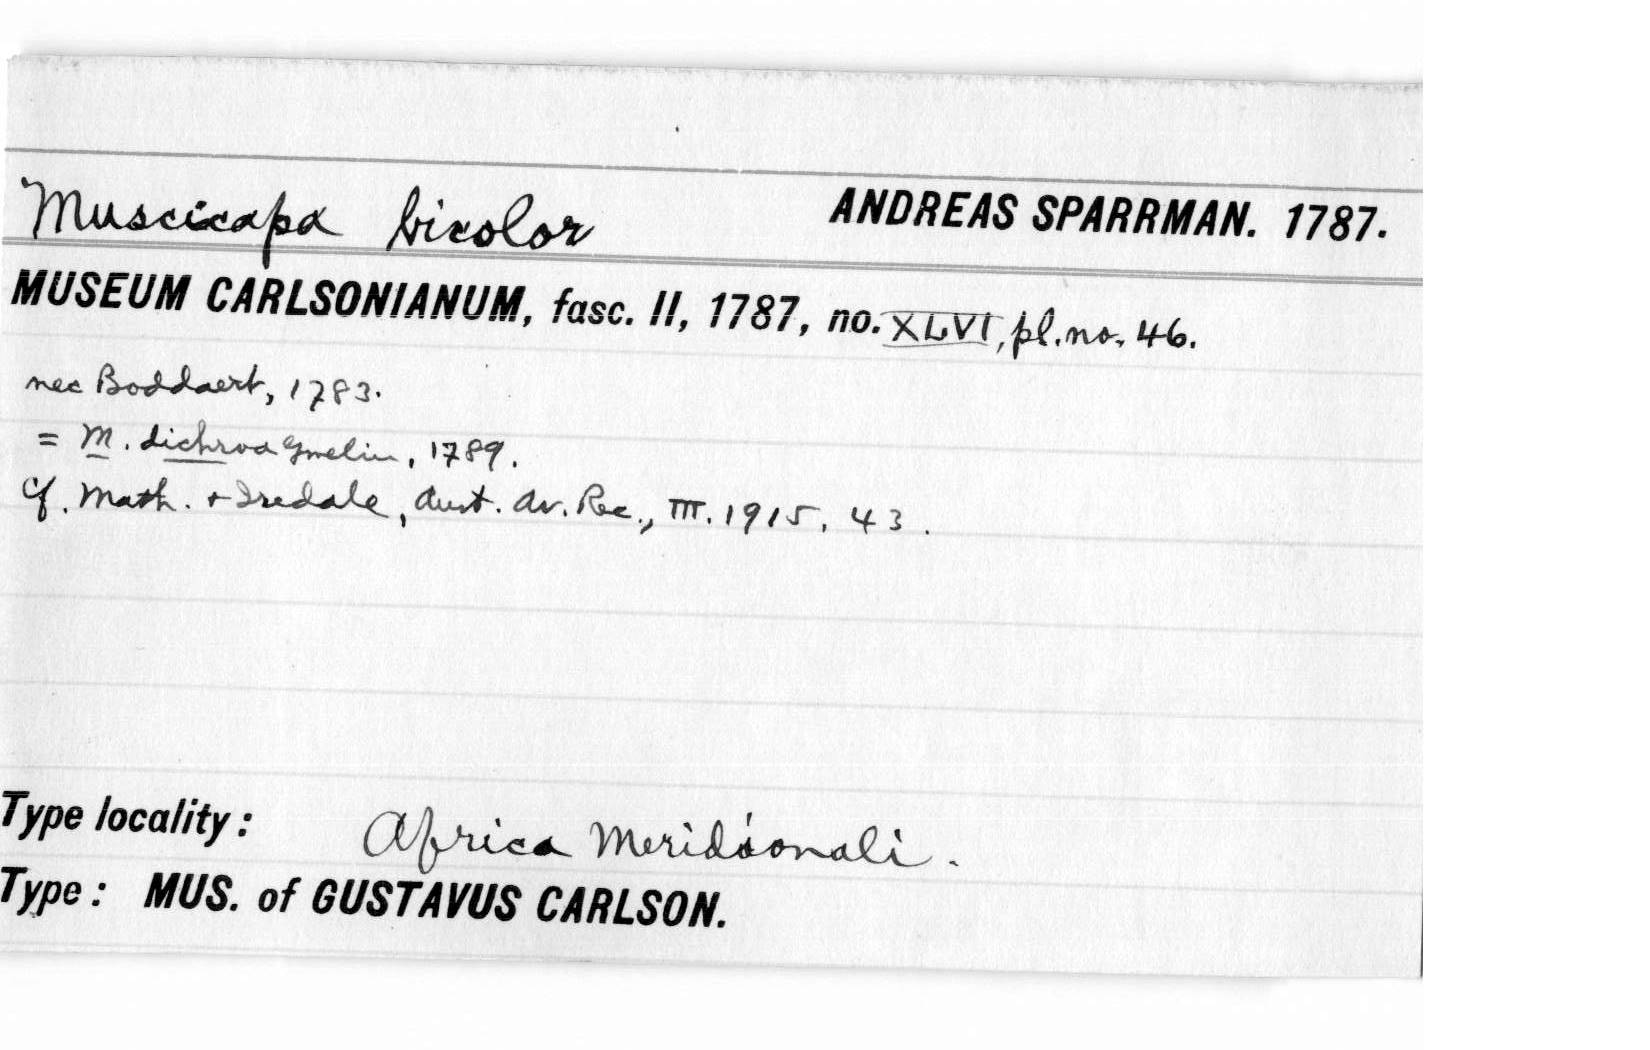 Muscicapa bicolor ANDREAS SPARRMAN. 1787.
MUSEUM CARLSONIANUM, fasc. II, 1787, no. XLVI, pl. no. 46.
nec Boddaert, 1783.
= M. dichroa Gmelin, 1789.
Cf. Math. + Iredale, Aust. Av. Rec., III. 1915. 43.
Type locality: Africa Meridionali.
Type: MUS. of GUSTAVUS CARLSON.